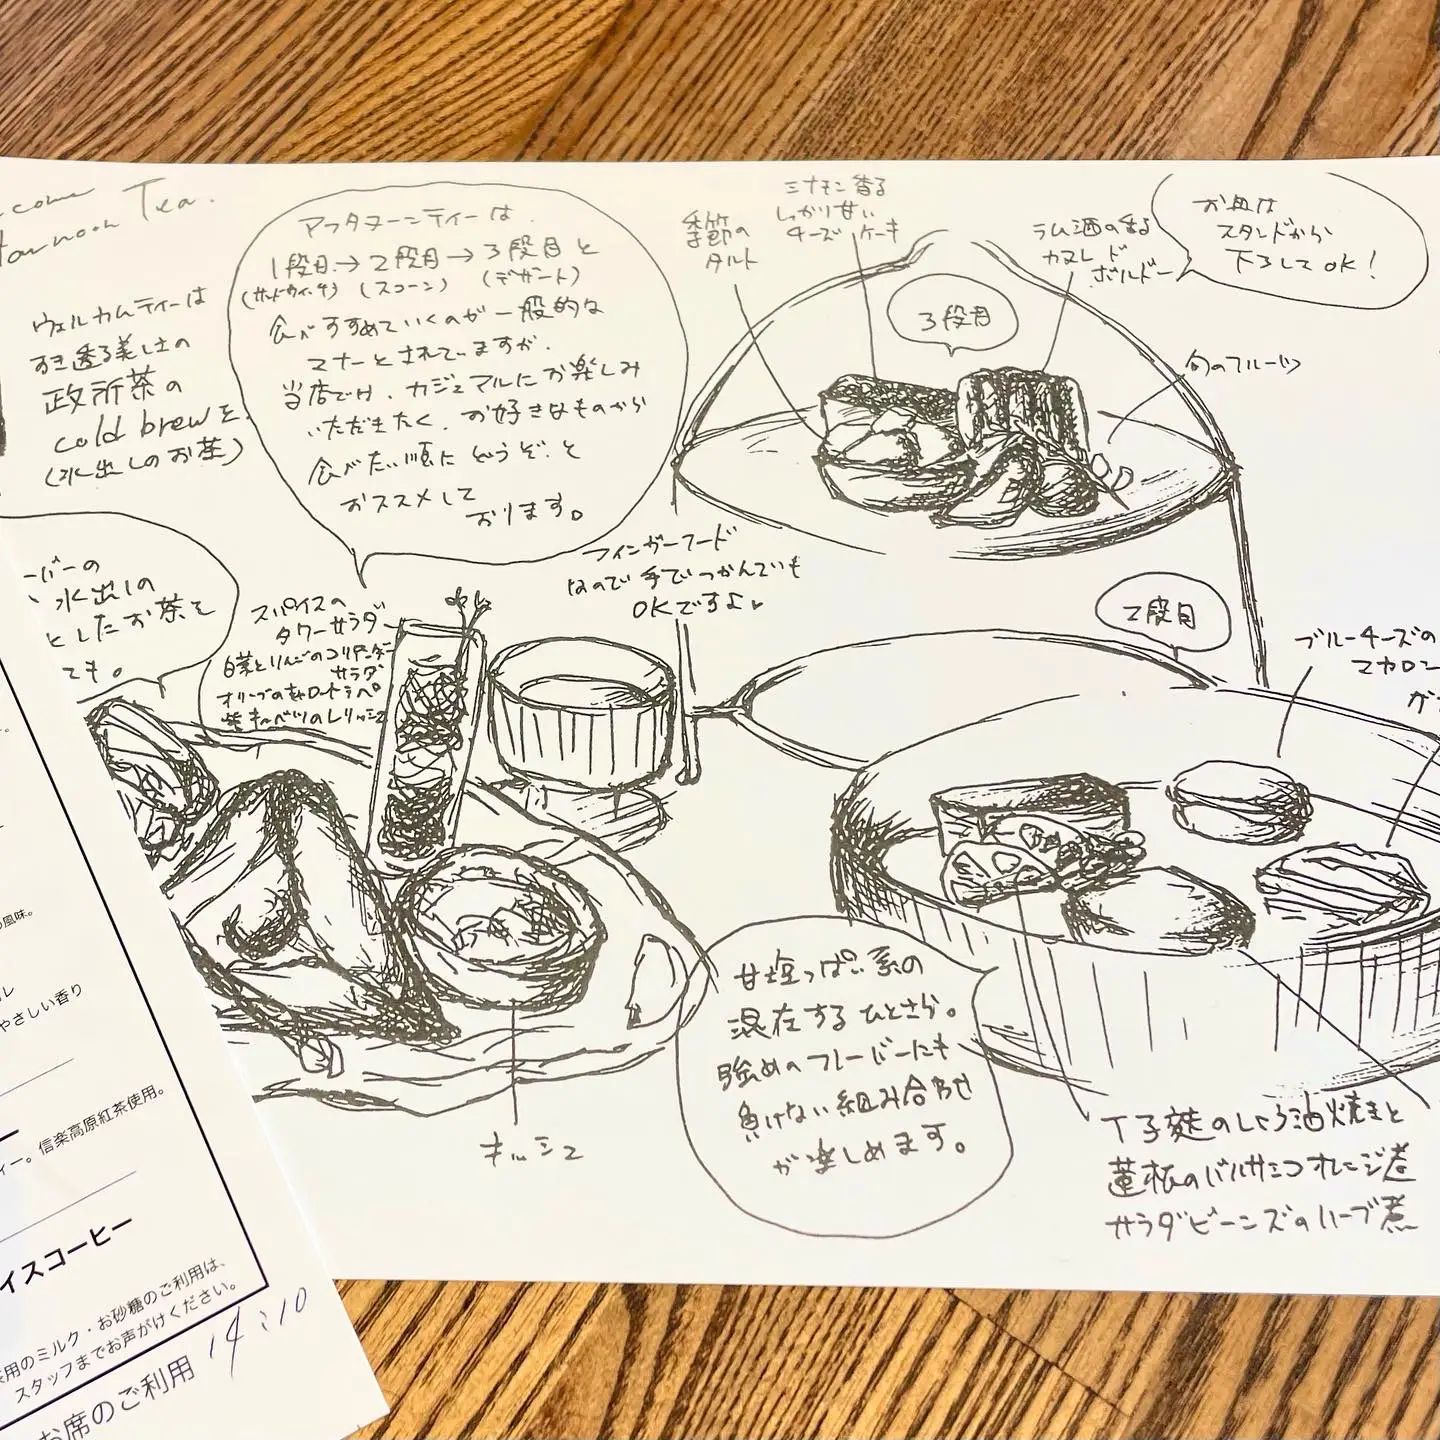 Tea.
ウェルカムティーは
すき透る美しさの
政所茶の
cold brewを
(水出しのお茶)
アフタヌーンティーは、
1段目→2段目→3段目と
(サンドウィッチ) (スコーン) (デザート)
食べすすめていくのが一般的な
マナーとされていますが、
当店では、カジュアルにお楽しみ
いただきたく、お好きなものから
食べたい順にどうぞ、と
おススメして
おります。
季節の
タルト
シナモン香る
しっかり甘い
チーズケーキ
ラム酒の香る
カヌレ ド
ボルドー
お皿は
スタンドから
下ろしてOK!
3段目
旬のフルーツ
ーバーの
水出しの
としたお茶を
ても。
スパイスの
タワーサラダ
白菜とりんごのコリアンダー
サラダ
オリーブのキャロットラペ
紫キャベツの
フィンガーフード
なので手でつかんでも
OKですよ
2段目
ブルーチーズの
マカロン
キッシュ
甘塩っぱい系の
混在するひとさら。
強めのフレーバーにも
負けない組み合わせ
が楽しめます。
丁子麩のしょう油焼きと
蓮根のバルサミコオレンジ煮
サラダビーンズのハーブ煮
風味。
レ
やさしい香り
ー
ィー。信楽高原紅茶使用。
イスコーヒー
用のミルク・お砂糖のご利用は、
スタッフまでお声がけください。
お席のご利用 14:10